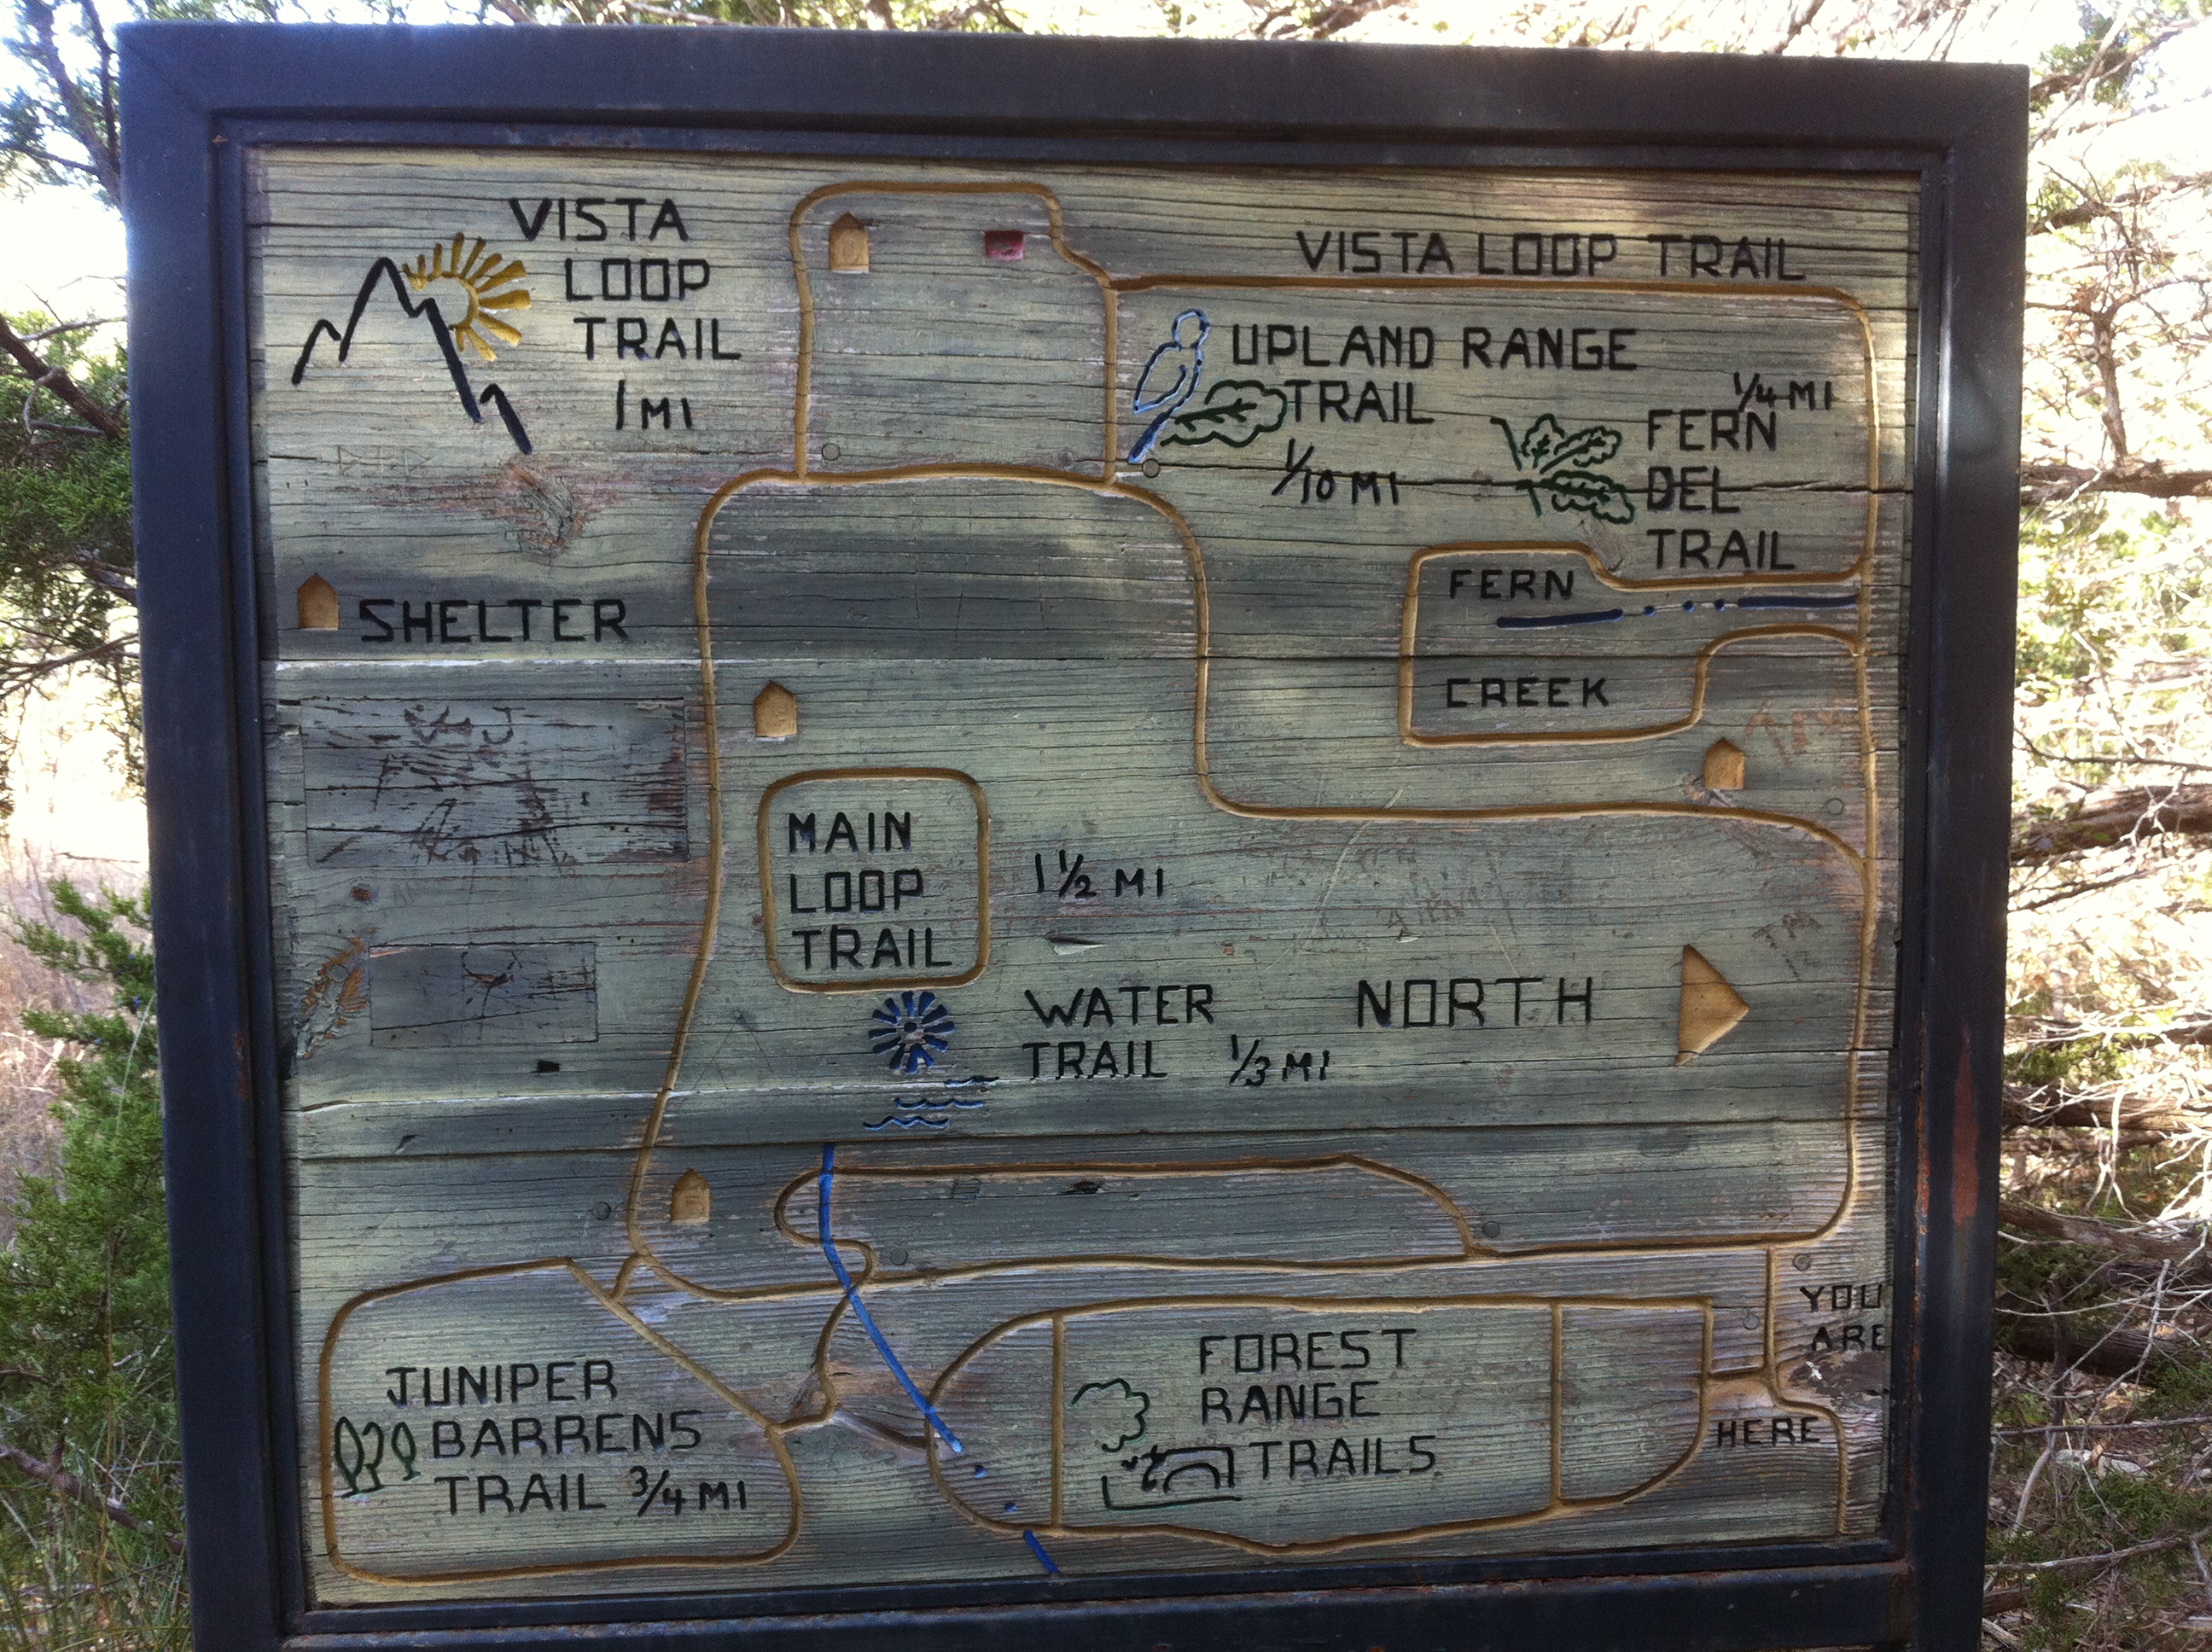 VISTA
LOOP
TRAIL
1 MI
VISTA LOOP TRAIL
UPLAND RANGE
TRAIL
1/10 MI
1/4 MI
FERN
DEL
TRAIL
FERN
CREEK
SHELTER
MAIN
LOOP
TRAIL
1 1/2 MI
WATER
TRAIL 1/3 MI
NORTH
YOU
ARE
HERE
JUNIPER
BARRENS
TRAIL 3/4 MI
FOREST
RANGE
TRAILS